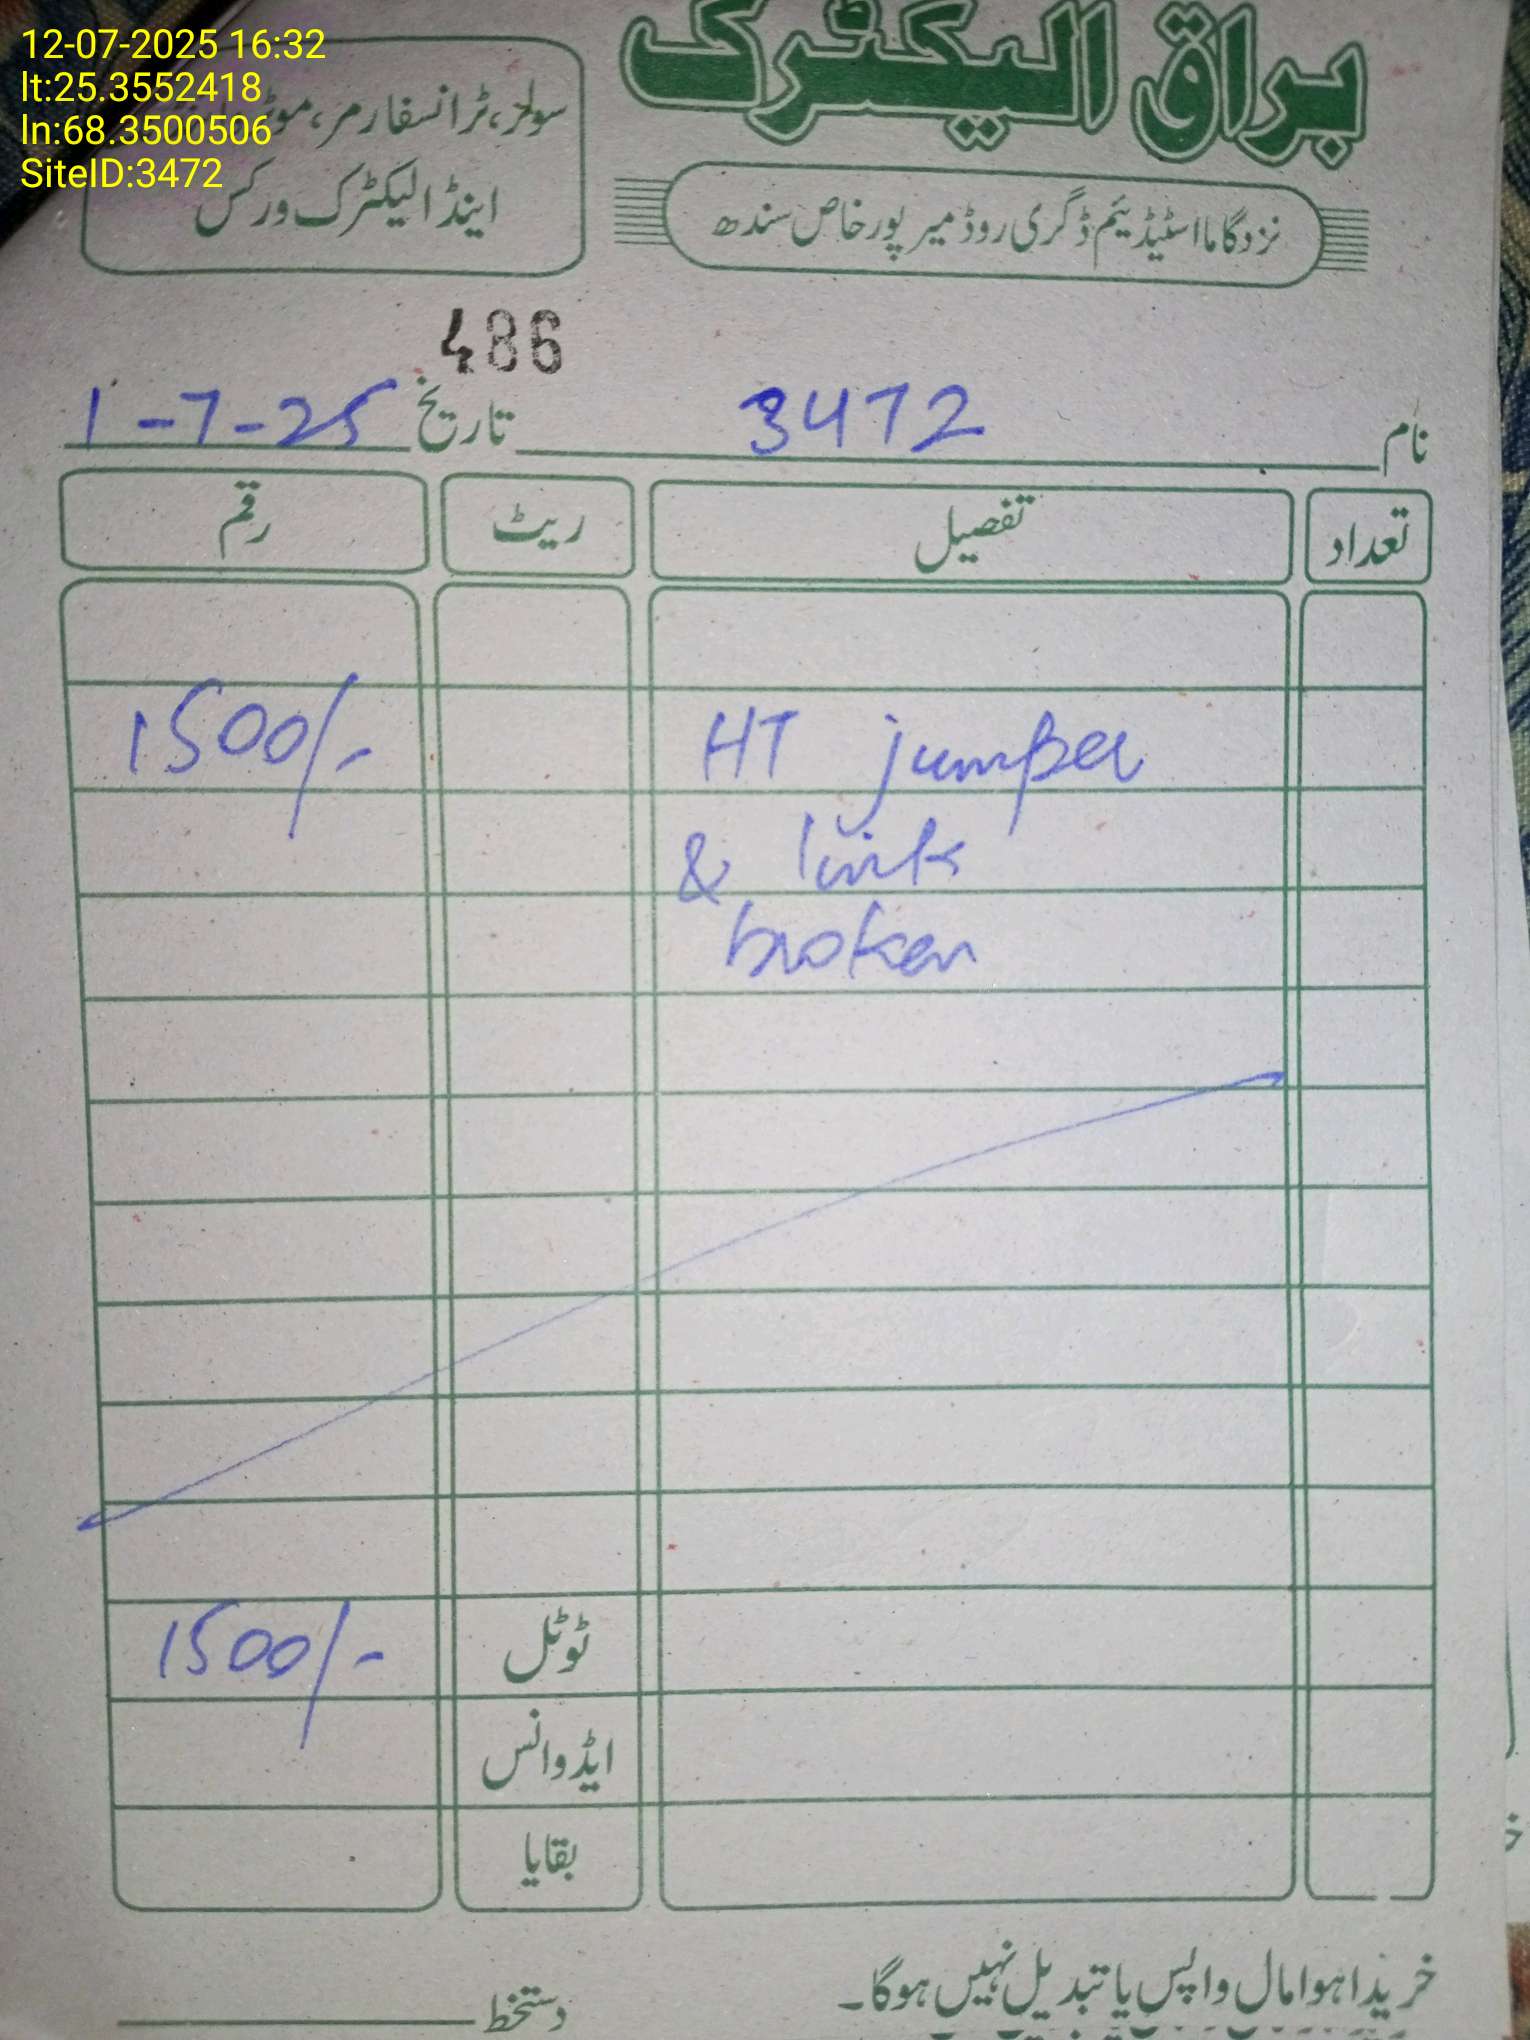 12-07-2025 16:32
lt:25.3552418
ln:68.3500506
SiteID:3472
براق الیکٹرک
سولر، ٹرانسفارمر، موٹر
اینڈ الیکٹرک ورکس
نزد گاما اسٹیڈیم ڈگری روڈ میرپورخاص سندھ
486
نام 3472 تاریخ 1-7-25
تعداد تفصیل ریٹ رقم
HT jumper 1500/-
& link
broken
ٹوٹل 1500/-
ایڈوانس
بقایا
خریدا ہوا مال واپس یا تبدیل نہیں ہوگا۔
دستخط